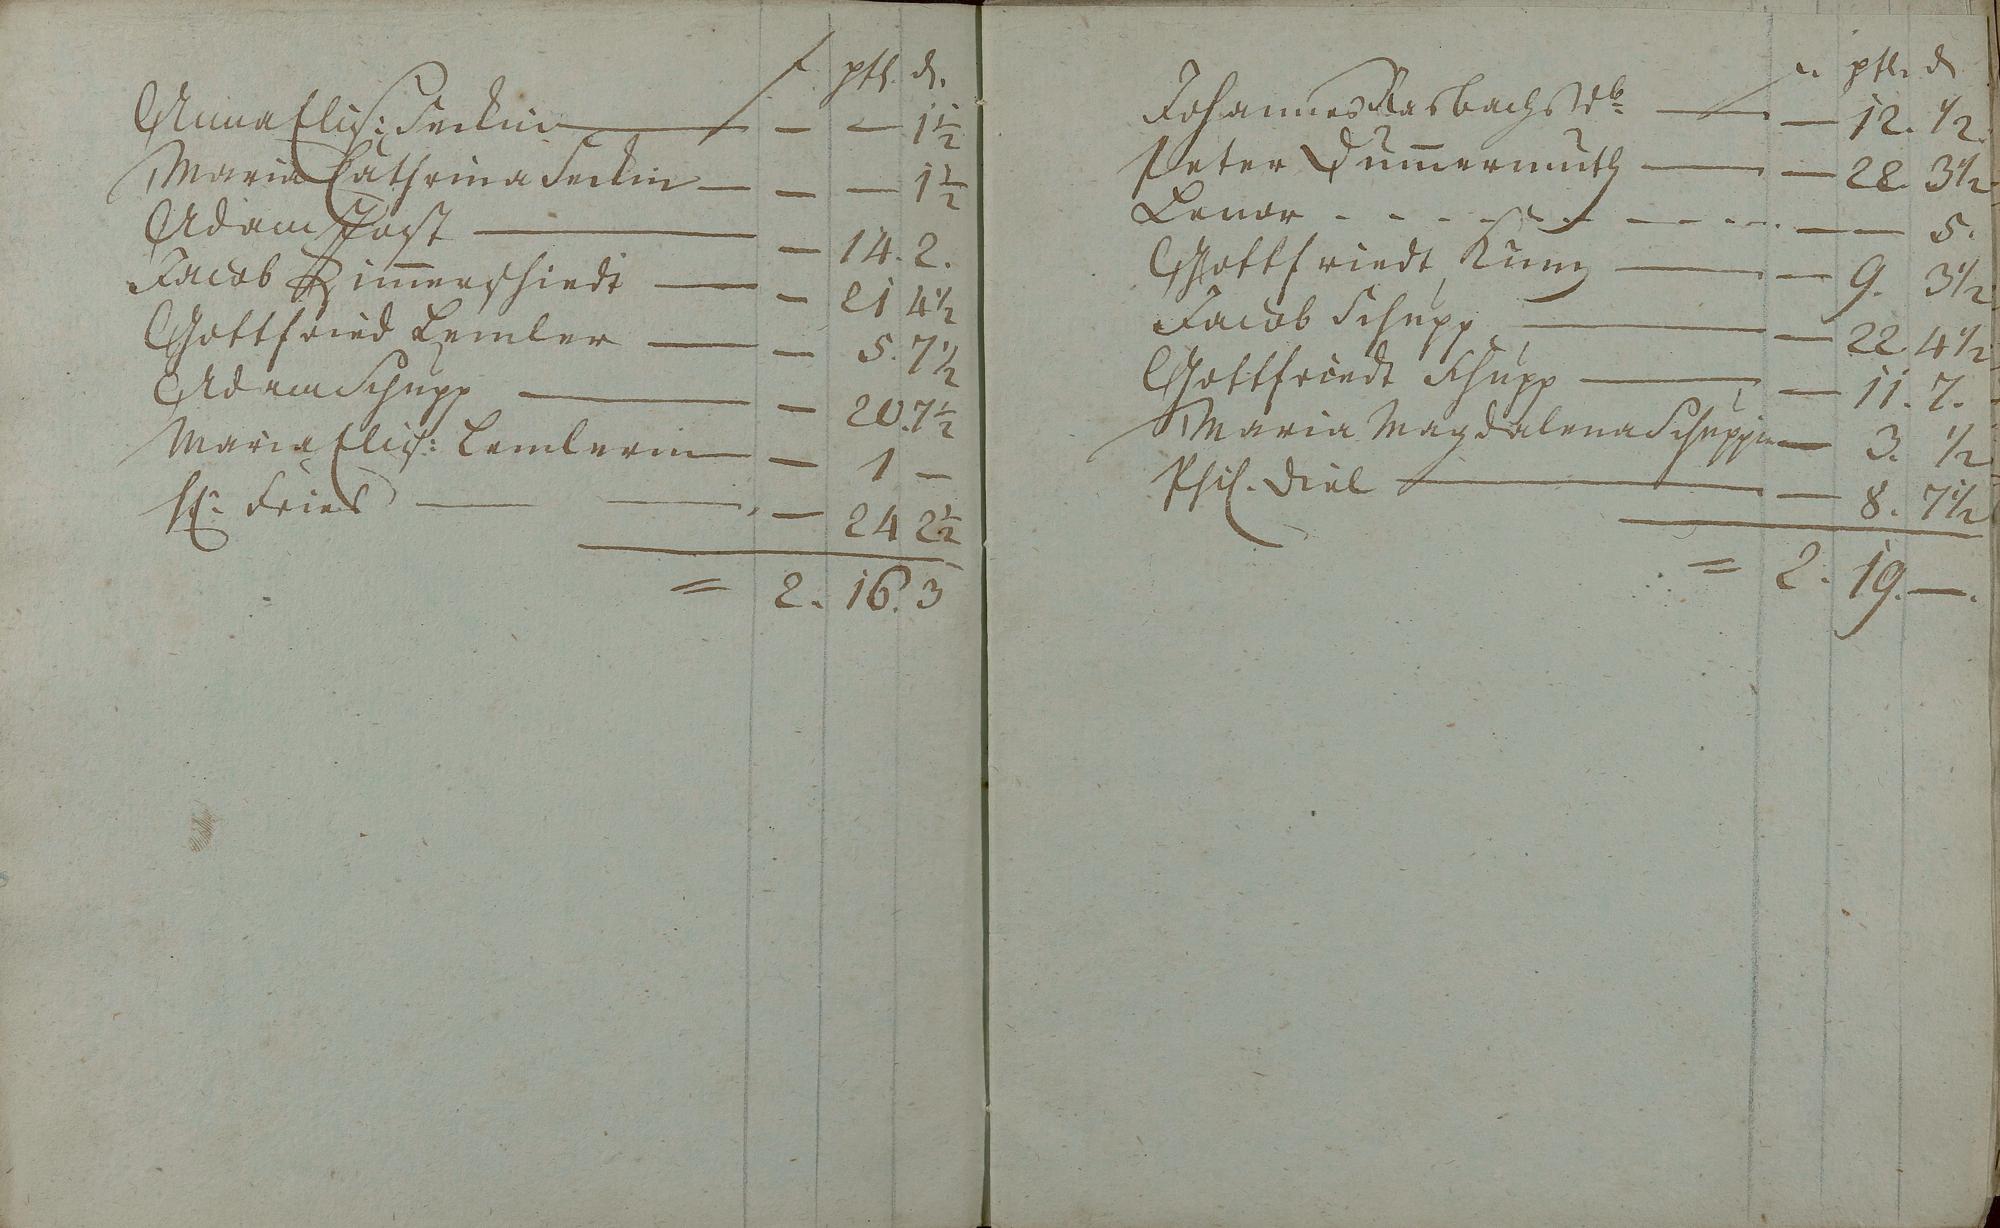 f. ptl. d.
Anna Elis: Feckin — — — 1 1/2
Maria Cathrina Feckin — — — 1 1/2
Adam Post — — 14. 2.
Jacob Zimerschiedt — — 21 4 1/2
Gottfried Lemler — — 5. 7 1/2
Adam Schupp — — 20. 7 1/2
Maria Elis: Lemlerin — — 1 —
Fries — — 24 2 1/2
= 2. 16. 3
ptl. d
Johannes Wb — — 12. 1/2
Peter Dumermuth — — 28. 3 1/2
Lenor - - - - - - - - — — 5.
Gottfriedt Kunz — — 9. 3 1/2
Jacob Schupp — — 22. 4 1/2
Gottfriedt Schupp — — 11. 7.
Maria Magdalena Schuppin — 3. 1/2
Phil. Diel — — 8. 7 1/2
= 2. 19. —.